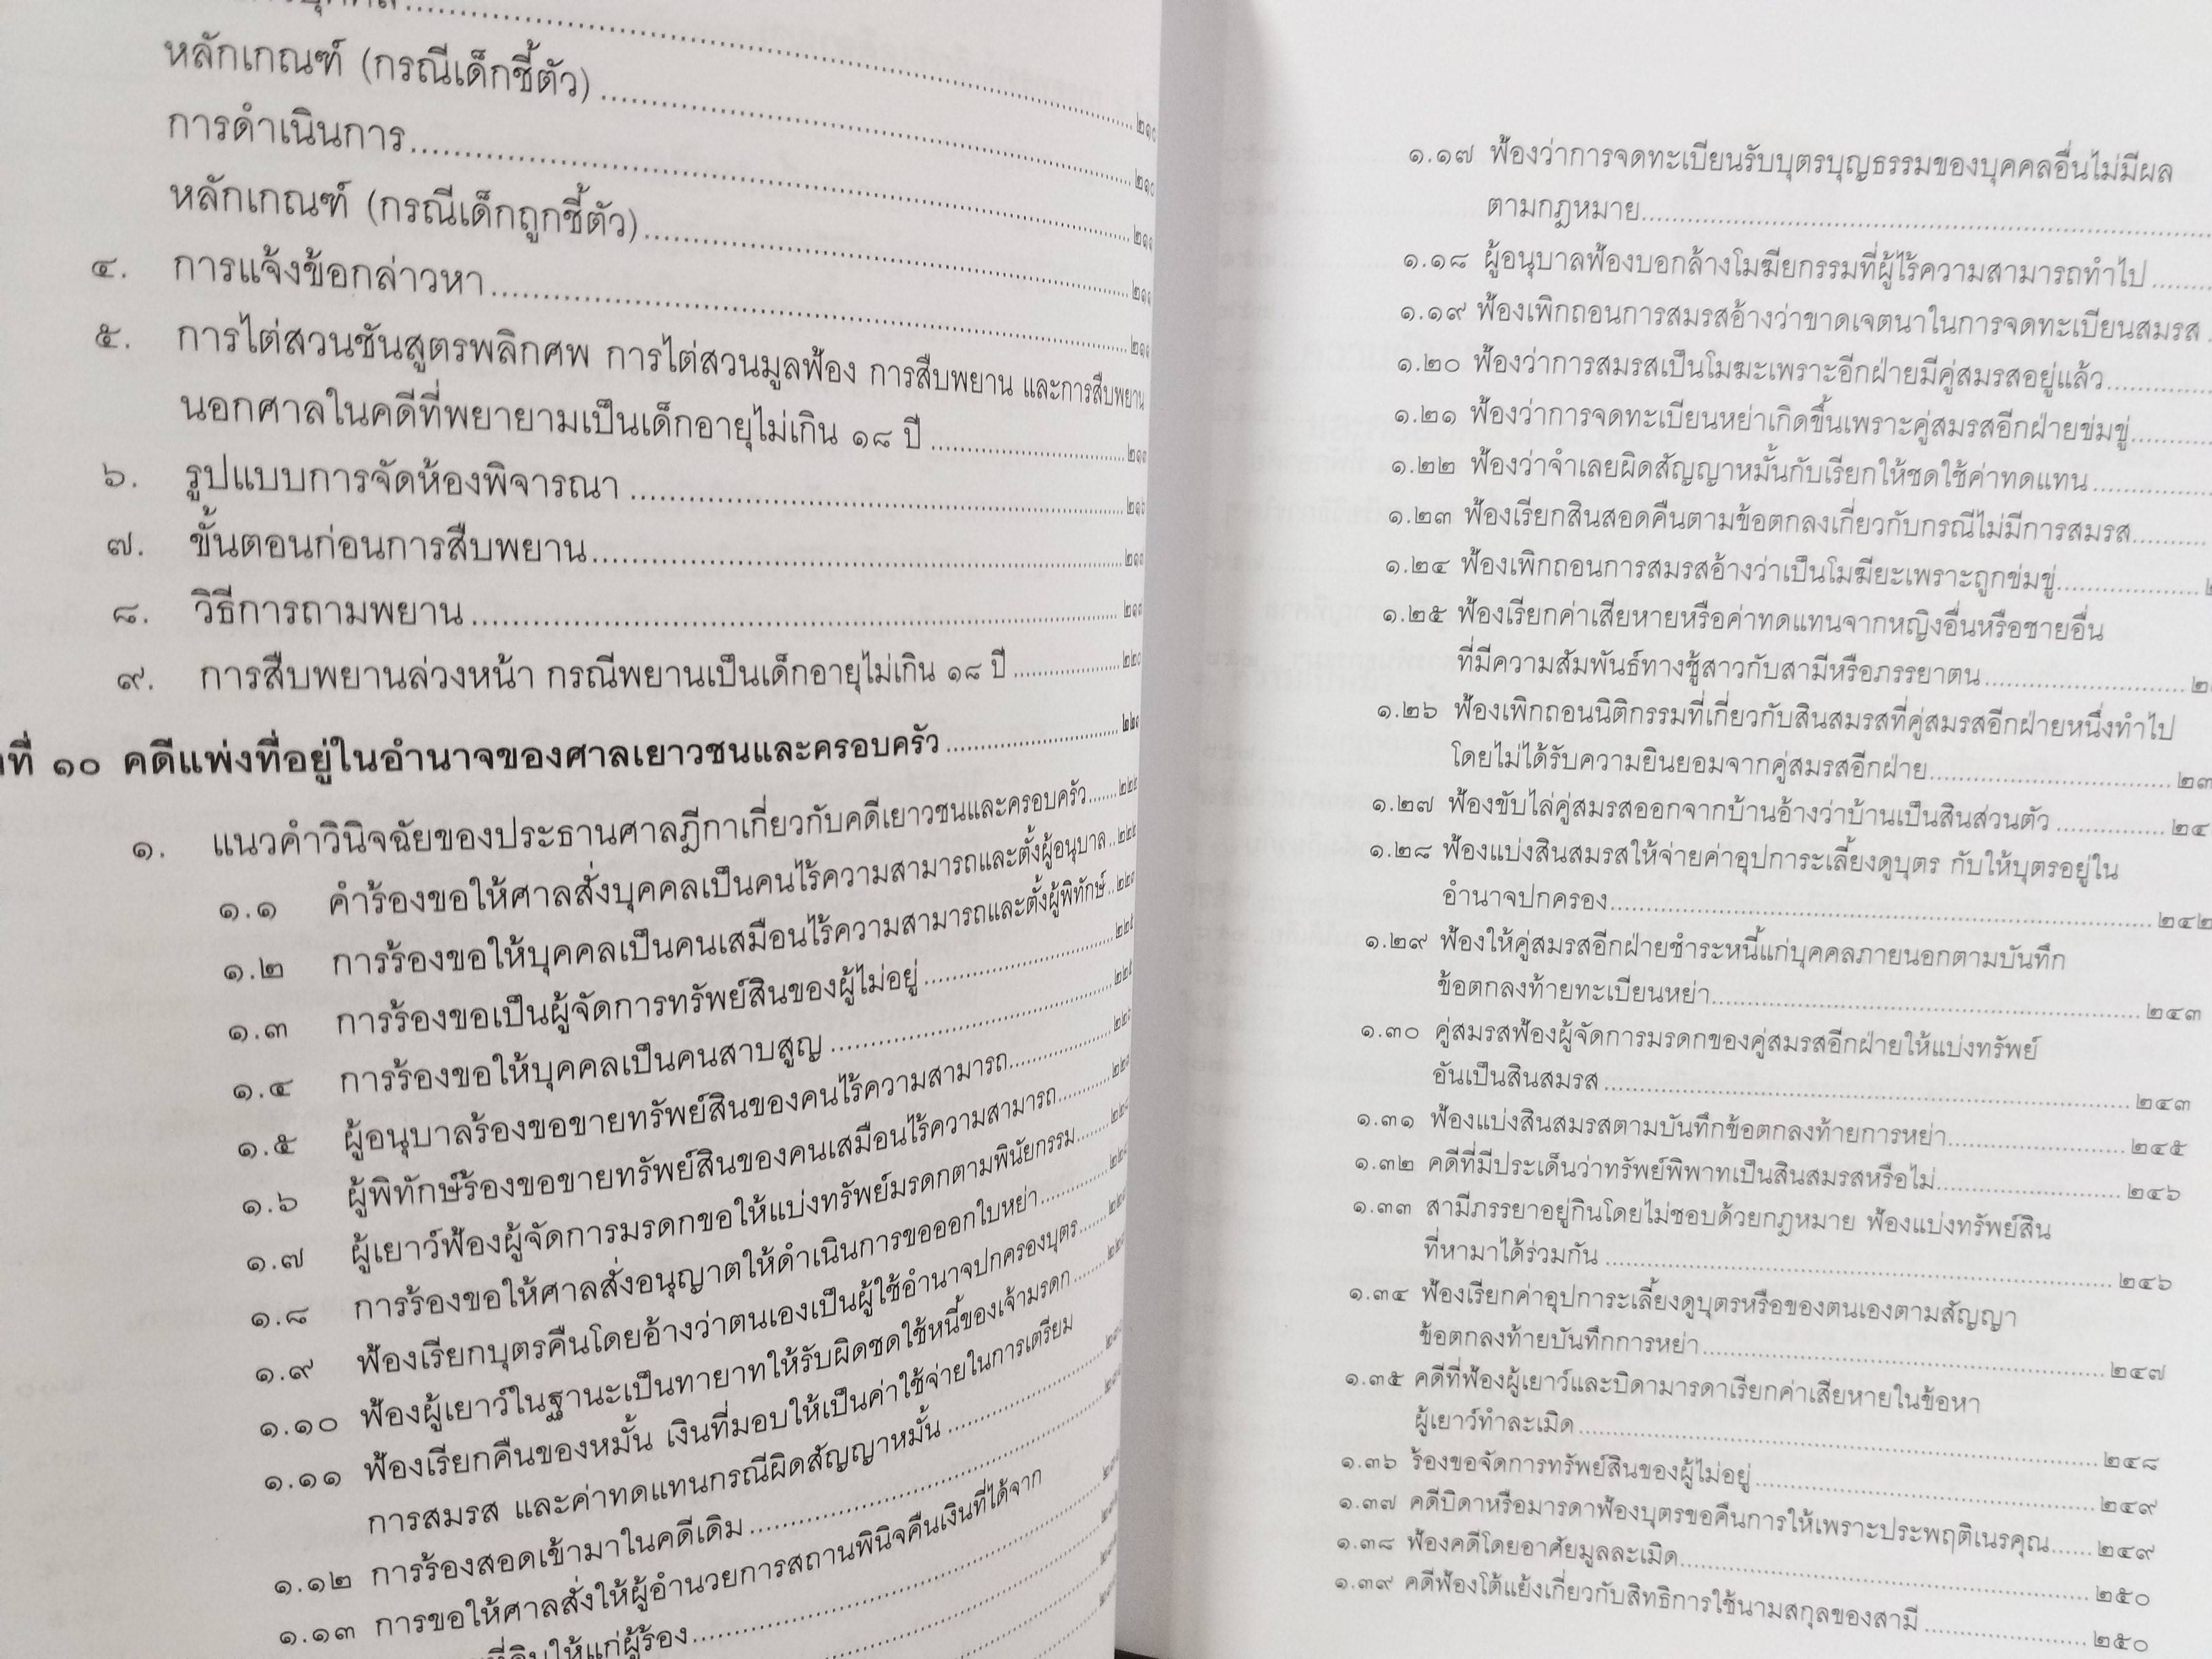 หลักเกณฑ์ (กรณีเด็กชี้ตัว) ........ ๒๑๐
การดำเนินการ ........ ๒๑๐
หลักเกณฑ์ (กรณีเด็กถูกชี้ตัว) ........ ๒๑๑
๔. การแจ้งข้อกล่าวหา ........ ๒๑๑
๕. การไต่สวนชันสูตรพลิกศพ การไต่สวนมูลฟ้อง การสืบพยาน และการสืบพยาน
นอกศาลในคดีที่พยายามเป็นเด็กอายุไม่เกิน ๑๘ ปี ........
๖. รูปแบบการจัดห้องพิจารณา ........ ๒๑๖
๗. ขั้นตอนก่อนการสืบพยาน ........
๘. วิธีการถามพยาน ........
๙. การสืบพยานล่วงหน้า กรณีพยานเป็นเด็กอายุไม่เกิน ๑๘ ปี ........ ๒๒๐
ที่ ๑๐ คดีแพ่งที่อยู่ในอำนาจของศาลเยาวชนและครอบครัว ........
๑. แนวคำวินิจฉัยของประธานศาลฎีกาเกี่ยวกับคดีเยาวชนและครอบครัว ........
๑.๑ คำร้องขอให้ศาลสั่งบุคคลเป็นคนไร้ความสามารถและตั้งผู้อนุบาล ..
๑.๒ การร้องขอให้บุคคลเป็นคนเสมือนไร้ความสามารถและตั้งผู้พิทักษ์ ..
๑.๓ การร้องขอเป็นผู้จัดการทรัพย์สินของผู้ไม่อยู่ ........
๑.๔ การร้องขอให้บุคคลเป็นคนสาบสูญ ........
๑.๕ ผู้อนุบาลร้องขอขายทรัพย์สินของคนไร้ความสามารถ ........
๑.๖ ผู้พิทักษ์ร้องขอขายทรัพย์สินของคนเสมือนไร้ความสามารถ ........
๑.๗ ผู้เยาว์ฟ้องผู้จัดการมรดกขอให้แบ่งทรัพย์มรดกตามพินัยกรรม ........
๑.๘ การร้องขอให้ศาลสั่งอนุญาตให้ดำเนินการขอออกใบหย่า ........
๑.๙ ฟ้องเรียกบุตรคืนโดยอ้างว่าตนเองเป็นผู้ใช้อำนาจปกครองบุตร ........
๑.๑๐ ฟ้องผู้เยาว์ในฐานะเป็นทายาทให้รับผิดชดใช้หนี้ของเจ้ามรดก ........
๑.๑๑ ฟ้องเรียกคืนของหมั้น เงินที่มอบให้เป็นค่าใช้จ่ายในการเตรียม
การสมรส และค่าทดแทนกรณีผิดสัญญาหมั้น ........
๑.๑๒ การร้องสอดเข้ามาในคดีเดิม ........
๑.๑๓ การขอให้ศาลสั่งให้ผู้อำนวยการสถานพินิจคืนเงินที่ได้จาก
ให้แก่ผู้ร้อง ........
๑.๑๗ ฟ้องว่าการจดทะเบียนรับบุตรบุญธรรมของบุคคลอื่นไม่มีผล
ตามกฎหมาย ........
๑.๑๘ ผู้อนุบาลฟ้องบอกล้างโมฆียกรรมที่ผู้ไร้ความสามารถทำไป ........
๑.๑๙ ฟ้องเพิกถอนการสมรสอ้างว่าขาดเจตนาในการจดทะเบียนสมรส ..
๑.๒๐ ฟ้องว่าการสมรสเป็นโมฆะเพราะอีกฝ่ายมีคู่สมรสอยู่แล้ว ........
๑.๒๑ ฟ้องว่าการจดทะเบียนหย่าเกิดขึ้นเพราะคู่สมรสอีกฝ่ายข่มขู่ ........
๑.๒๒ ฟ้องว่าจำเลยผิดสัญญาหมั้นกับเรียกให้ชดใช้ค่าทดแทน ........
๑.๒๓ ฟ้องเรียกสินสอดคืนตามข้อตกลงเกี่ยวกับกรณีไม่มีการสมรส ........
๑.๒๔ ฟ้องเพิกถอนการสมรสอ้างว่าเป็นโมฆียะเพราะถูกข่มขู่ ........
๑.๒๕ ฟ้องเรียกค่าเสียหายหรือค่าทดแทนจากหญิงอื่นหรือชายอื่น
ที่มีความสัมพันธ์ทางชู้สาวกับสามีหรือภรรยาตน ........
๑.๒๖ ฟ้องเพิกถอนนิติกรรมที่เกี่ยวกับสินสมรสที่คู่สมรสอีกฝ่ายหนึ่งทำไป
โดยไม่ได้รับความยินยอมจากคู่สมรสอีกฝ่าย ........ ๒๓
๑.๒๗ ฟ้องขับไล่คู่สมรสออกจากบ้านอ้างว่าบ้านเป็นสินส่วนตัว ........ ๒๔
๑.๒๘ ฟ้องแบ่งสินสมรสให้จ่ายค่าอุปการะเลี้ยงดูบุตร กับให้บุตรอยู่ใน
อำนาจปกครอง ........ ๒๔๒
๑.๒๙ ฟ้องให้คู่สมรสอีกฝ่ายชำระหนี้แก่บุคคลภายนอกตามบันทึก
ข้อตกลงท้ายทะเบียนหย่า ........ ๒๔๓
๑.๓๐ คู่สมรสฟ้องผู้จัดการมรดกของคู่สมรสอีกฝ่ายให้แบ่งทรัพย์
อันเป็นสินสมรส ........ ๒๔๓
๑.๓๑ ฟ้องแบ่งสินสมรสตามบันทึกข้อตกลงท้ายการหย่า ........ ๒๔๕
๑.๓๒ คดีที่มีประเด็นว่าทรัพย์พิพาทเป็นสินสมรสหรือไม่ ........ ๒๔๖
๑.๓๓ สามีภรรยาอยู่กินโดยไม่ชอบด้วยกฎหมาย ฟ้องแบ่งทรัพย์สิน
ที่หามาได้ร่วมกัน ........ ๒๔๖
๑.๓๔ ฟ้องเรียกค่าอุปการะเลี้ยงดูบุตรหรือของตนเองตามสัญญา
ข้อตกลงท้ายบันทึกการหย่า ........ ๒๔๗
๑.๓๕ คดีที่ฟ้องผู้เยาว์และบิดามารดาเรียกค่าเสียหายในข้อหา
ผู้เยาว์ทำละเมิด ........ ๒๔๘
๑.๓๖ ร้องขอจัดการทรัพย์สินของผู้ไม่อยู่ ........ ๒๔๙
๑.๓๗ คดีบิดาหรือมารดาฟ้องบุตรขอคืนการให้เพราะประพฤติเนรคุณ ...... ๒๔๙
๑.๓๘ ฟ้องคดีโดยอาศัยมูลละเมิด ........ ๒๕๐
๑.๓๙ คดีฟ้องโต้แย้งเกี่ยวกับสิทธิการใช้นามสกุลของสามี ........ ๒๕๐